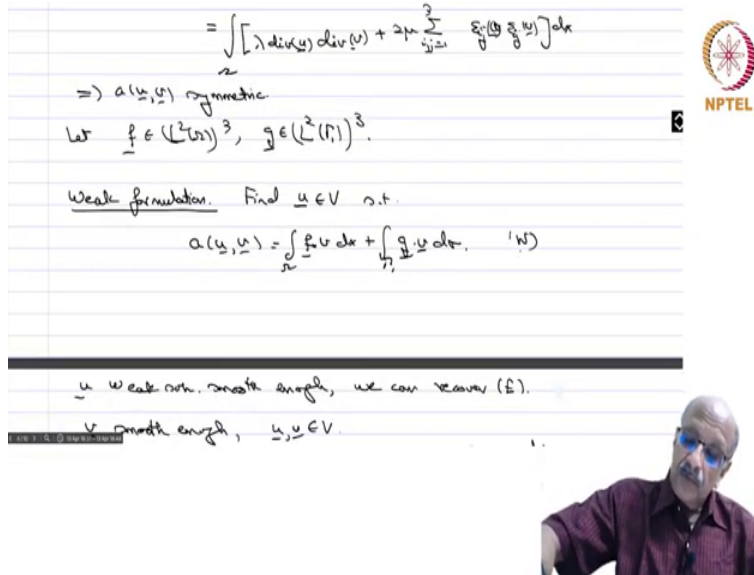 = ∫_Ω [λ div(u) div(v) + 2μ Σ_{i,j=1}^{3} ε_ij(u) ε_ij(v)] dx
=) a(u,v) symmetric.
Let f ∈ (L²(Ω))³, g ∈ (L²(Γ₁))³.
NPTEL
Weak formulation. Find u ∈ V s.t.
a(u,v) = ∫_Ω f.v dx + ∫_Γ₁ g.v dσ. (W)
u weak soln. smooth enough, we can recover (E).
v smooth enough, u,v ∈ V.